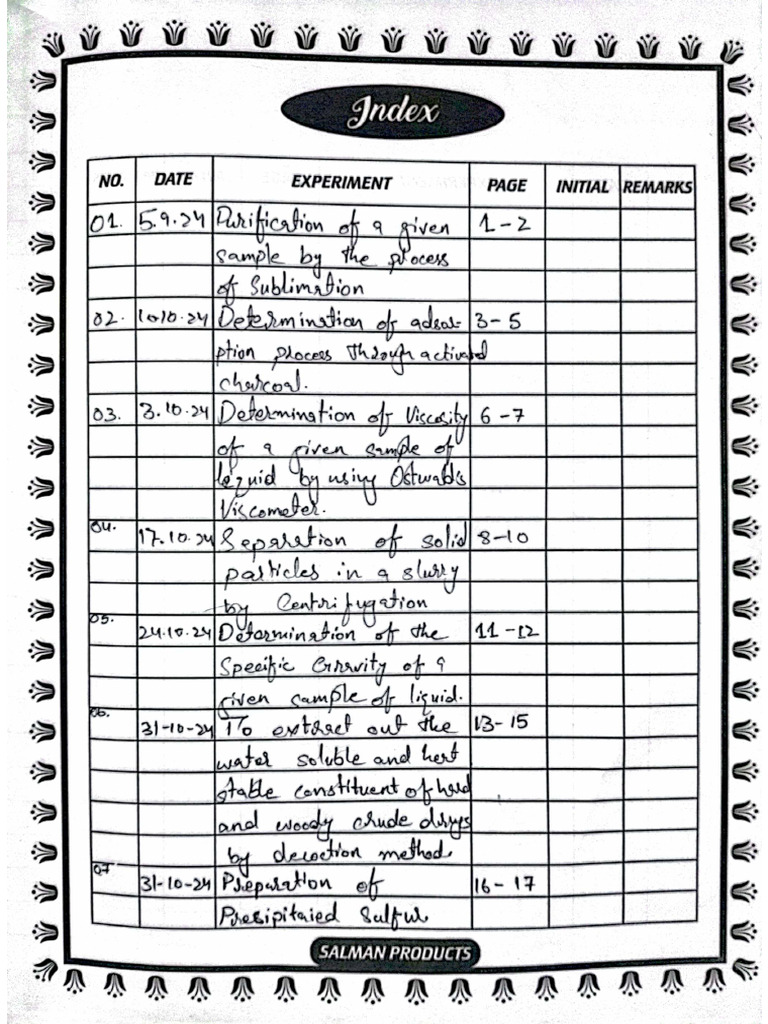 Index
NO. DATE EXPERIMENT PAGE INITIAL REMARKS
01. 5.9.24 Purification of a given 1-2
sample by the process
of Sublimation
02. 10.10.24 Determination of adsor- 3-5
ption process through activated
charcoal.
03. 3.10.24 Determination of Viscosity 6-7
of a given sample of
liquid by using Ostwald's
Viscometer.
04. 17.10.24 Separation of solid 8-10
particles in a slurry
by Centrifugation
05. 24.10.24 Determination of the 11-12
Specific Gravity of a
given sample of liquid.
06. 31-10-24 To extract out the 13-15
water soluble and heat
stable constituent of hard
and woody crude drugs
by decoction method.
07 31-10-24 Preparation of 16-17
Presipitaied Sulfur
SALMAN PRODUCTS